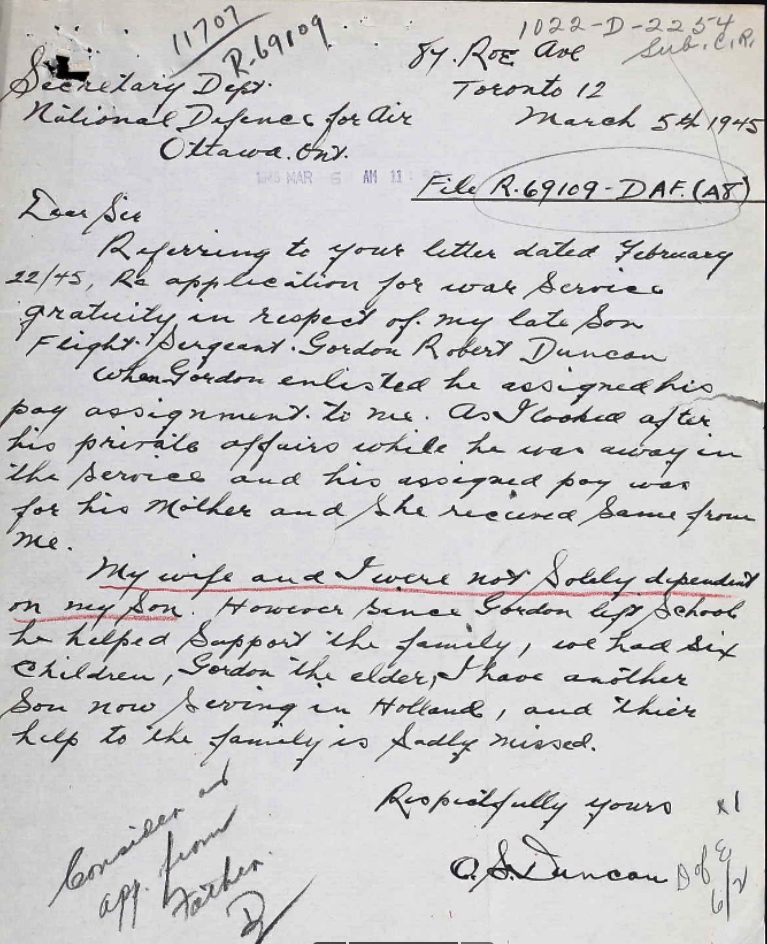 1022-D-2254
11707
R-69109
Sub. C.R.
84. Roe Ave
Secretary Dept.
Toronto 12
National Defence for Air
March 5th 1945
Ottawa. Ont.
1945 MAR 6 AM 11
File R.69109-DAF.(A8)
Dear Sir
Referring to your letter dated February
22/45, Re application for war Service
gratuity in respect of my late Son
Flight Sergeant. Gordon Robert Duncan
When Gordon enlisted he assigned his
pay assignment to me. As I looked after
his private affairs while he was away in
the Service and his assigned pay was
for his Mother and She recieved Same from
me.
My wife and I were not Solely dependent
on my Son. However Since Gordon left School
he helped Support the family, we had Six
Children, Gordon the elder, I have another
Son now Serving in Holland, and thier
help to the family is Sadly missed.
Respectfully yours
O. S. Duncan
Consider as
app. from
Father.
D of E
6/2